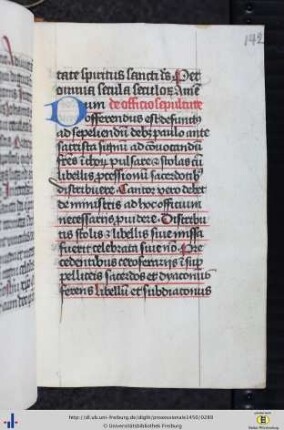 142
tate spiritus sancti
omnia secula seculoꝝ Amē
Dum de officio sepulture
offerendus est defunctꝰ
ad sepeliendū debꝫ paulo ante
sacrista signū ad ōuocandū
frēs ī choꝝ pulsare ⁊ stolas cū
libellis ꝓcessionū sacerdotibꝰ
distribuere. Cantor vero debet
de ministris ad hoc officium
necessariis ꝓuidere. Distribu
tis stolis ⁊ libellis siue missa
fuerit celebrata siue nō. Pre
cedentibus ceroferariis ī sup
pelliciis sacerdos et dyaconus
ferens libellū et subdiaconus
http://dl.ub.uni-freiburg.de/diglit/processionale1450/0289
© Universitätsbibliothek Freiburg